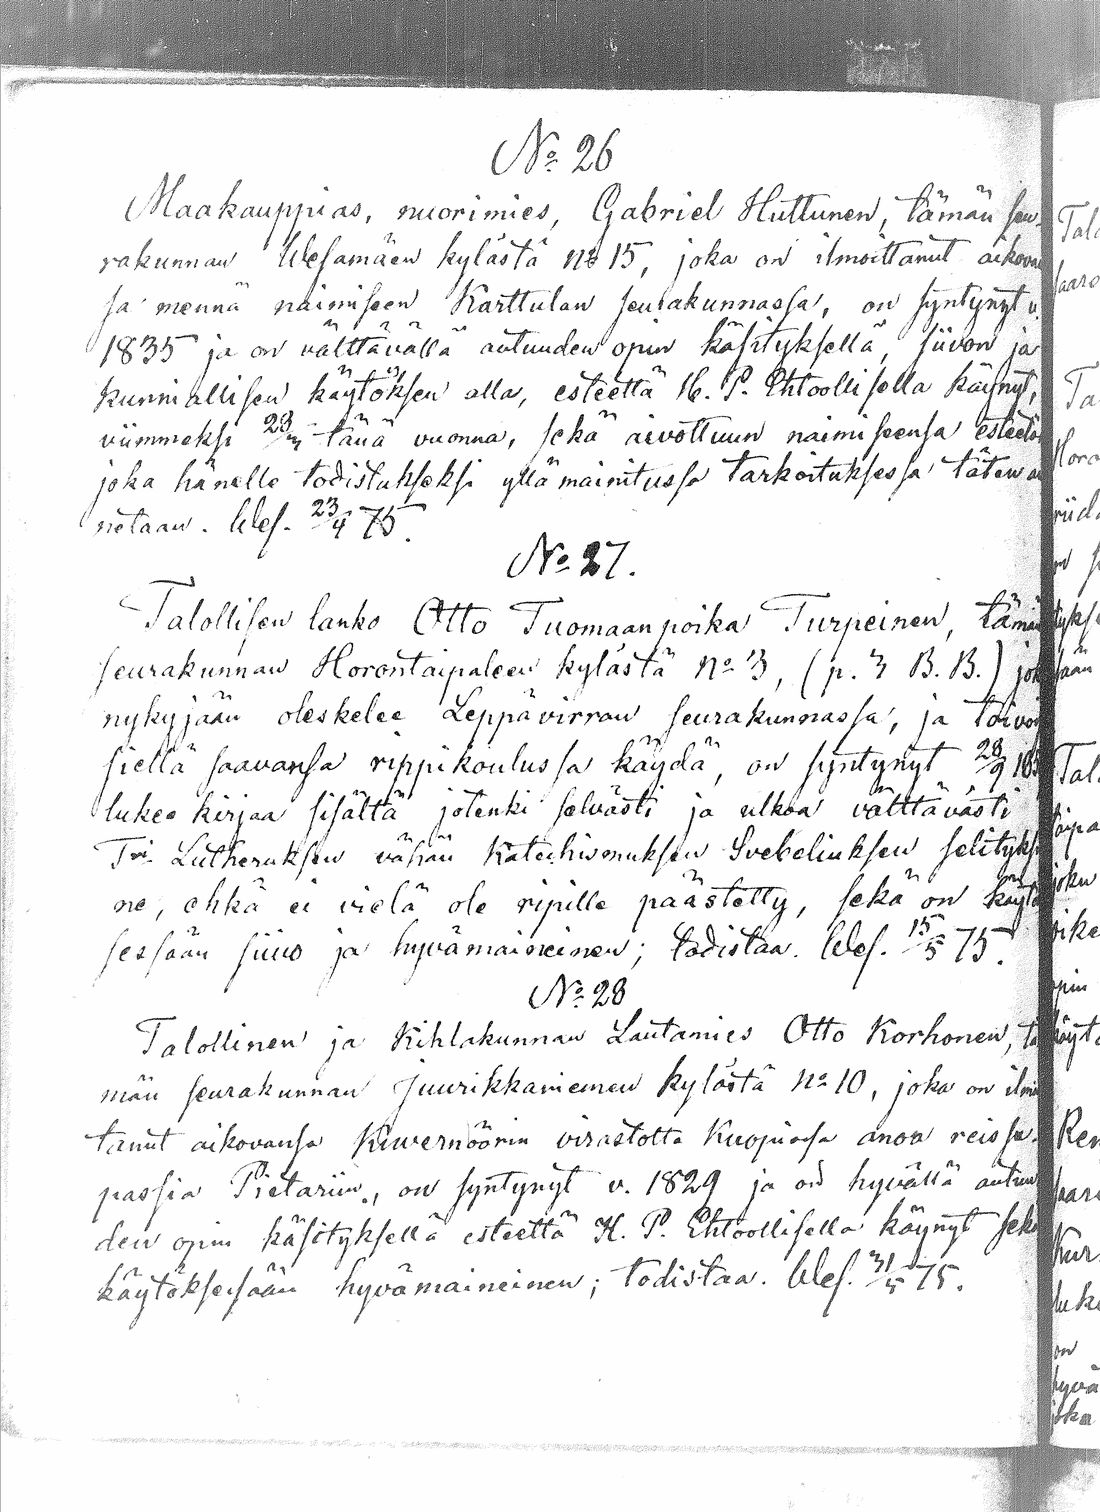 No 26
Maakauppias, nuorimies, Gabriel Huttunen, tämän seu-
rakunnan Wesamäen kylästä No 15, joka on ilmoittanut aikovan
sa mennä naimiseen Karttulan seurakunnassa, on syntynyt v.
1835 ja on välttävällä autuuden opin käsityksellä, siivon ja
kunniallisen käytöksen alla, esteettä H. P. Ehtoollisella käynyt,
viimmeksi 23/ tänä vuonna, sekä aivottuun naimiseensa esteetön
joka hänelle todistukseksi yllämainitussa tarkoituksessa täten an
netaan. Wes. 23/4 75.
No 27.
Talollisen lanko Otto Tuomaanpoika Turpeinen, tämän
seurakunnan Horontaipaleen kylästä No 3, (p. 3 B. B.) jok
nykyjään oleskelee Leppävirran seurakunnassa, ja toivoi
siellä saavansa rippikoulussa käydä, on syntynyt 28/9 185
lukee kirjaa sisältä jotenki selvästi ja ulkoa välttävästi
Tri Lutheruksen vähän Katechismuksen Svebeliuksen selityksi
ne, ehkä ei vielä ole ripille päästetty, sekä on käytö
sessään siivo ja hyvämaineinen; todistaa. Wes. 15/5 75.
No 28
Talollinen ja Kihlakunnan Lautamies Otto Korhonen, tä
män seurakunnan Juurikkaniemen kylästä No 10, joka on ilmoi
tanut aikovansa Kuvernöörin virastotta Kuopiossa anoa reissu-
passia Pietariin, on syntynyt v. 1829 ja on hyvällä autuu
den opin käsityksellä esteettä H. P. Ehtoollisella käynyt sekä
käytöksessään hyvämaineinen; todistaa. Wes. 31/5 75.